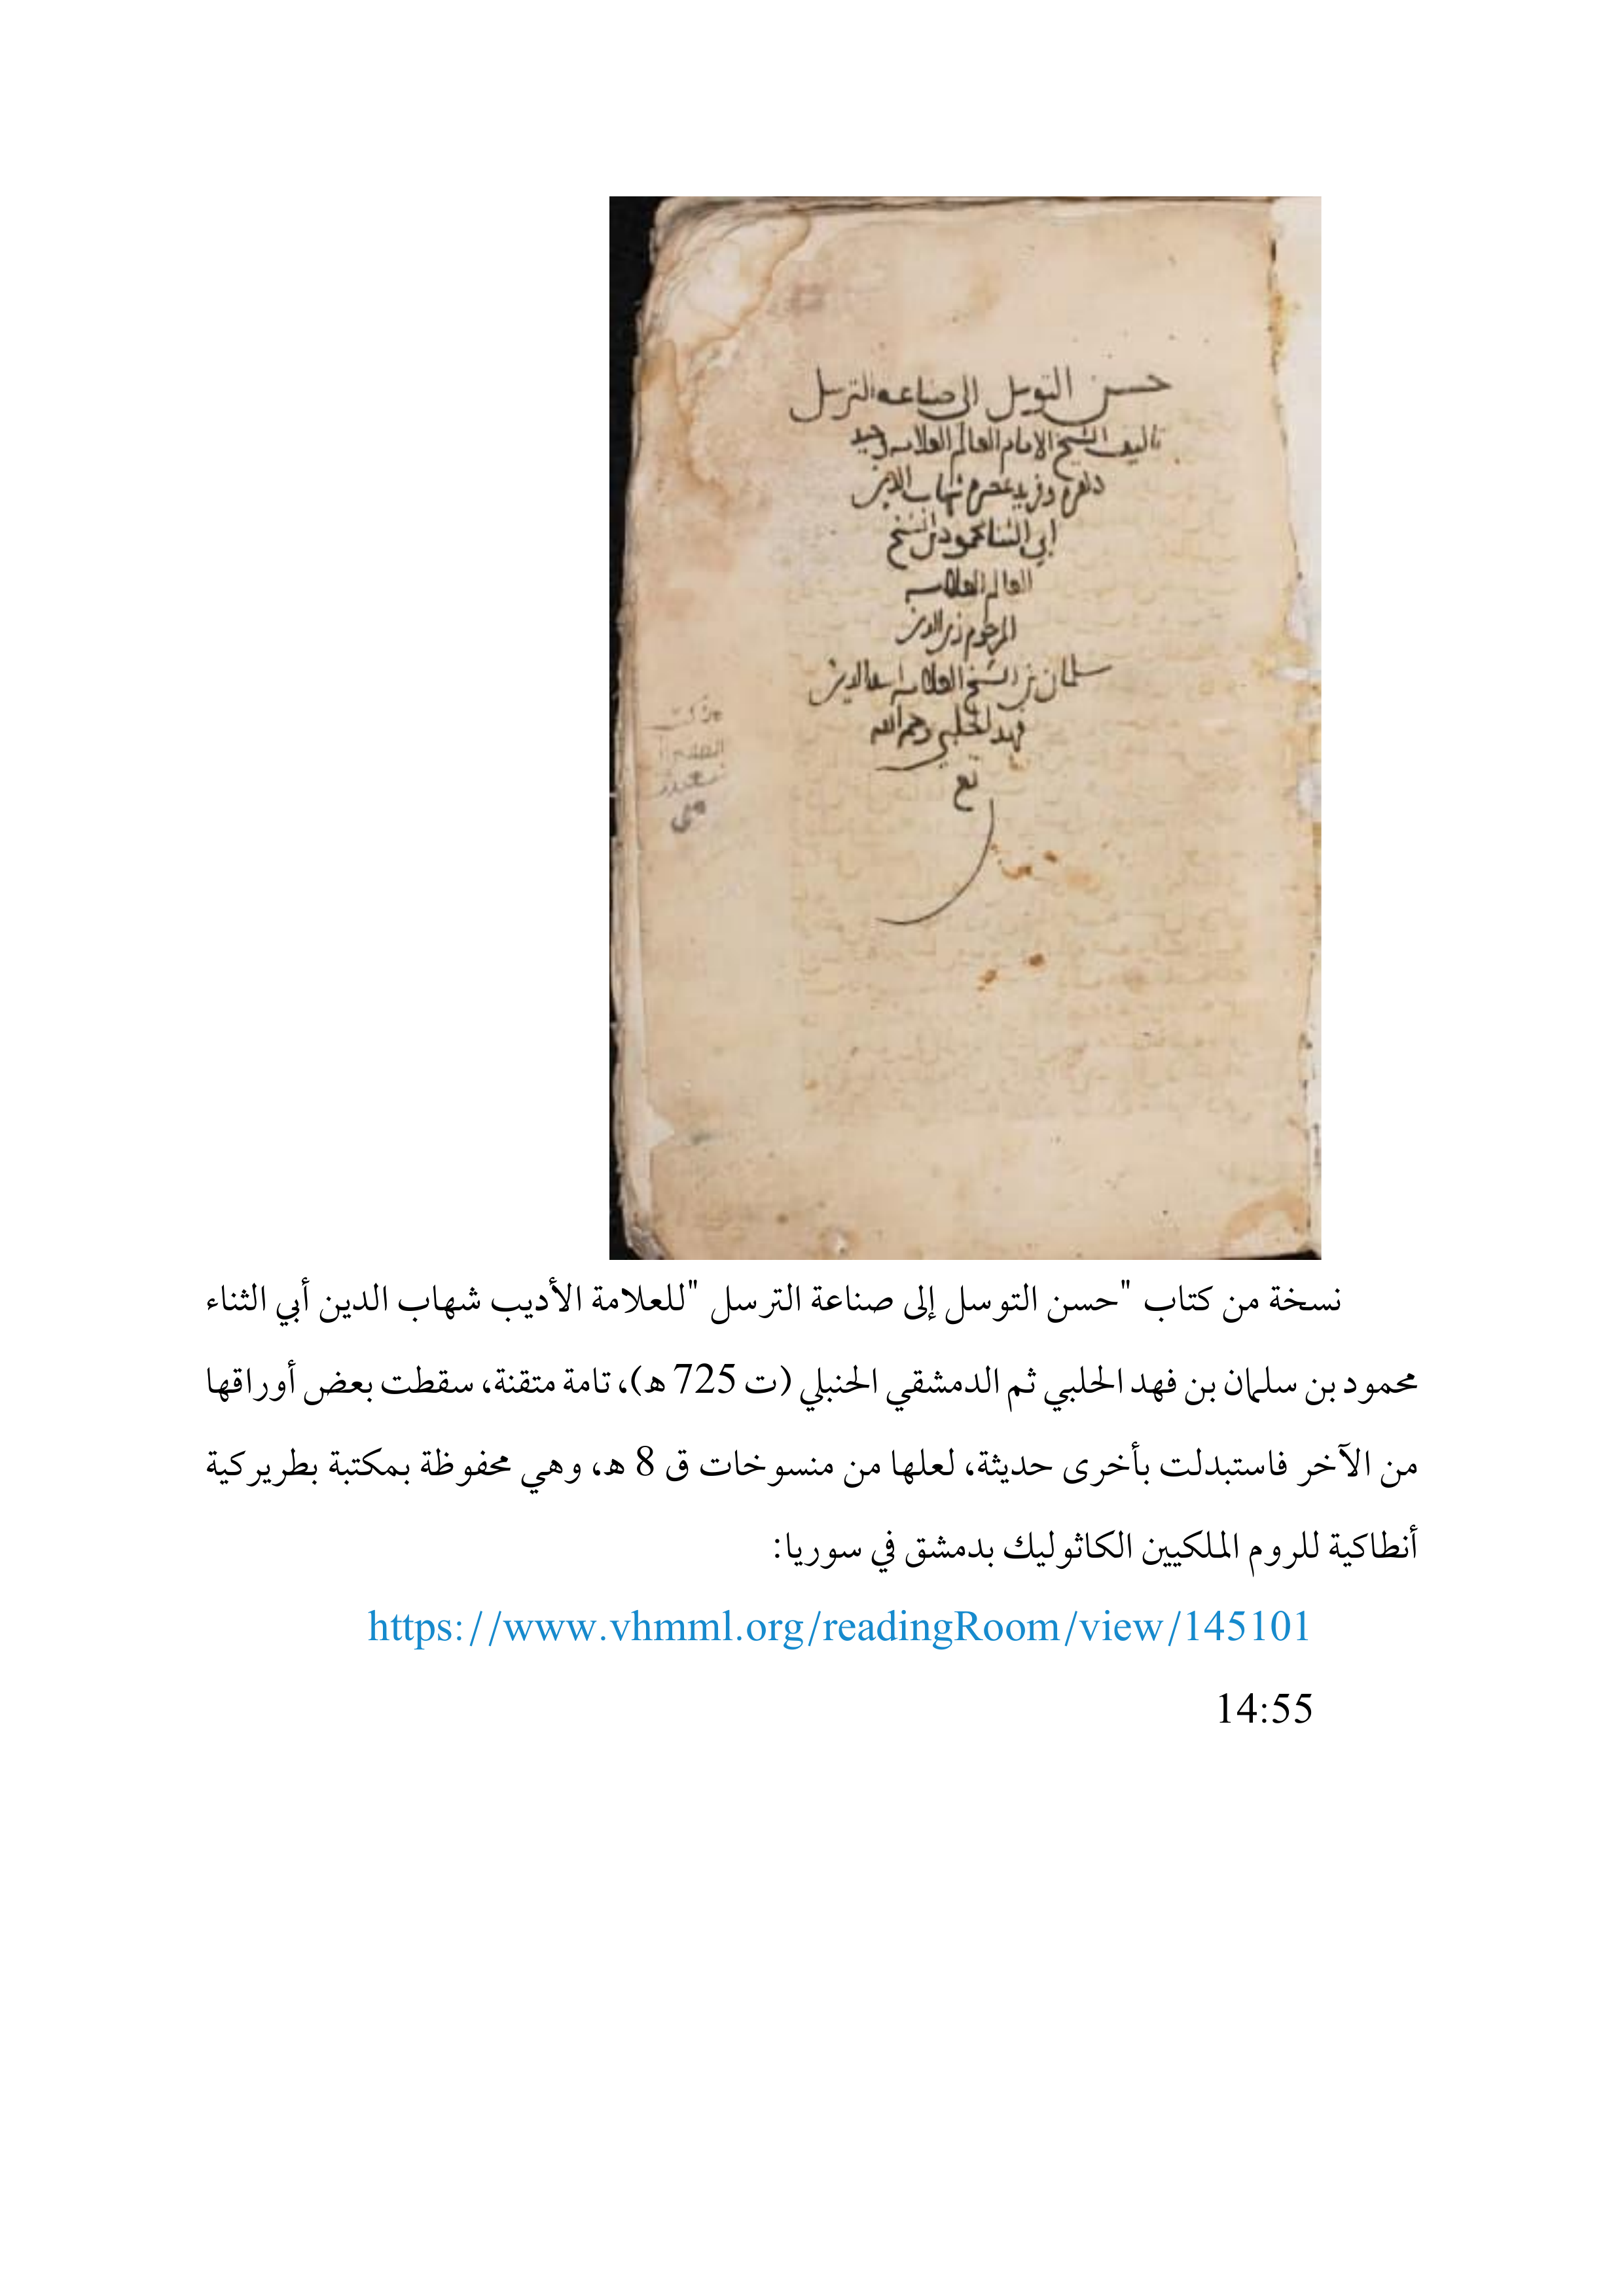 حسن التوسل الى صناعه الترسل
تاليف الشيخ الامام العالم العلامه وحيد
دهره وفريد عصره شهاب الدين
ابي الثنا محمود بن الشيخ
العالم العلامه
المرحوم زين الدين
سلمان بن الشيخ العلامه اسد الدين
فهد الحلبي رحمه الله
تع
من كتب
الفقير
نسخة من كتاب "حسن التوسل إلى صناعة الترسل "للعلامة الأديب شهاب الدين أبي الثناء
محمود بن سلمان بن فهد الحلبي ثم الدمشقي الحنبلي (ت 725 هـ)، تامة متقنة، سقطت بعض أوراقها
من الآخر فاستبدلت بأخرى حديثة، لعلها من منسوخات ق 8 هـ، وهي محفوظة بمكتبة بطريركية
أنطاكية للروم الملكيين الكاثوليك بدمشق في سوريا:
https://www.vhmml.org/readingRoom/view/145101
14:55